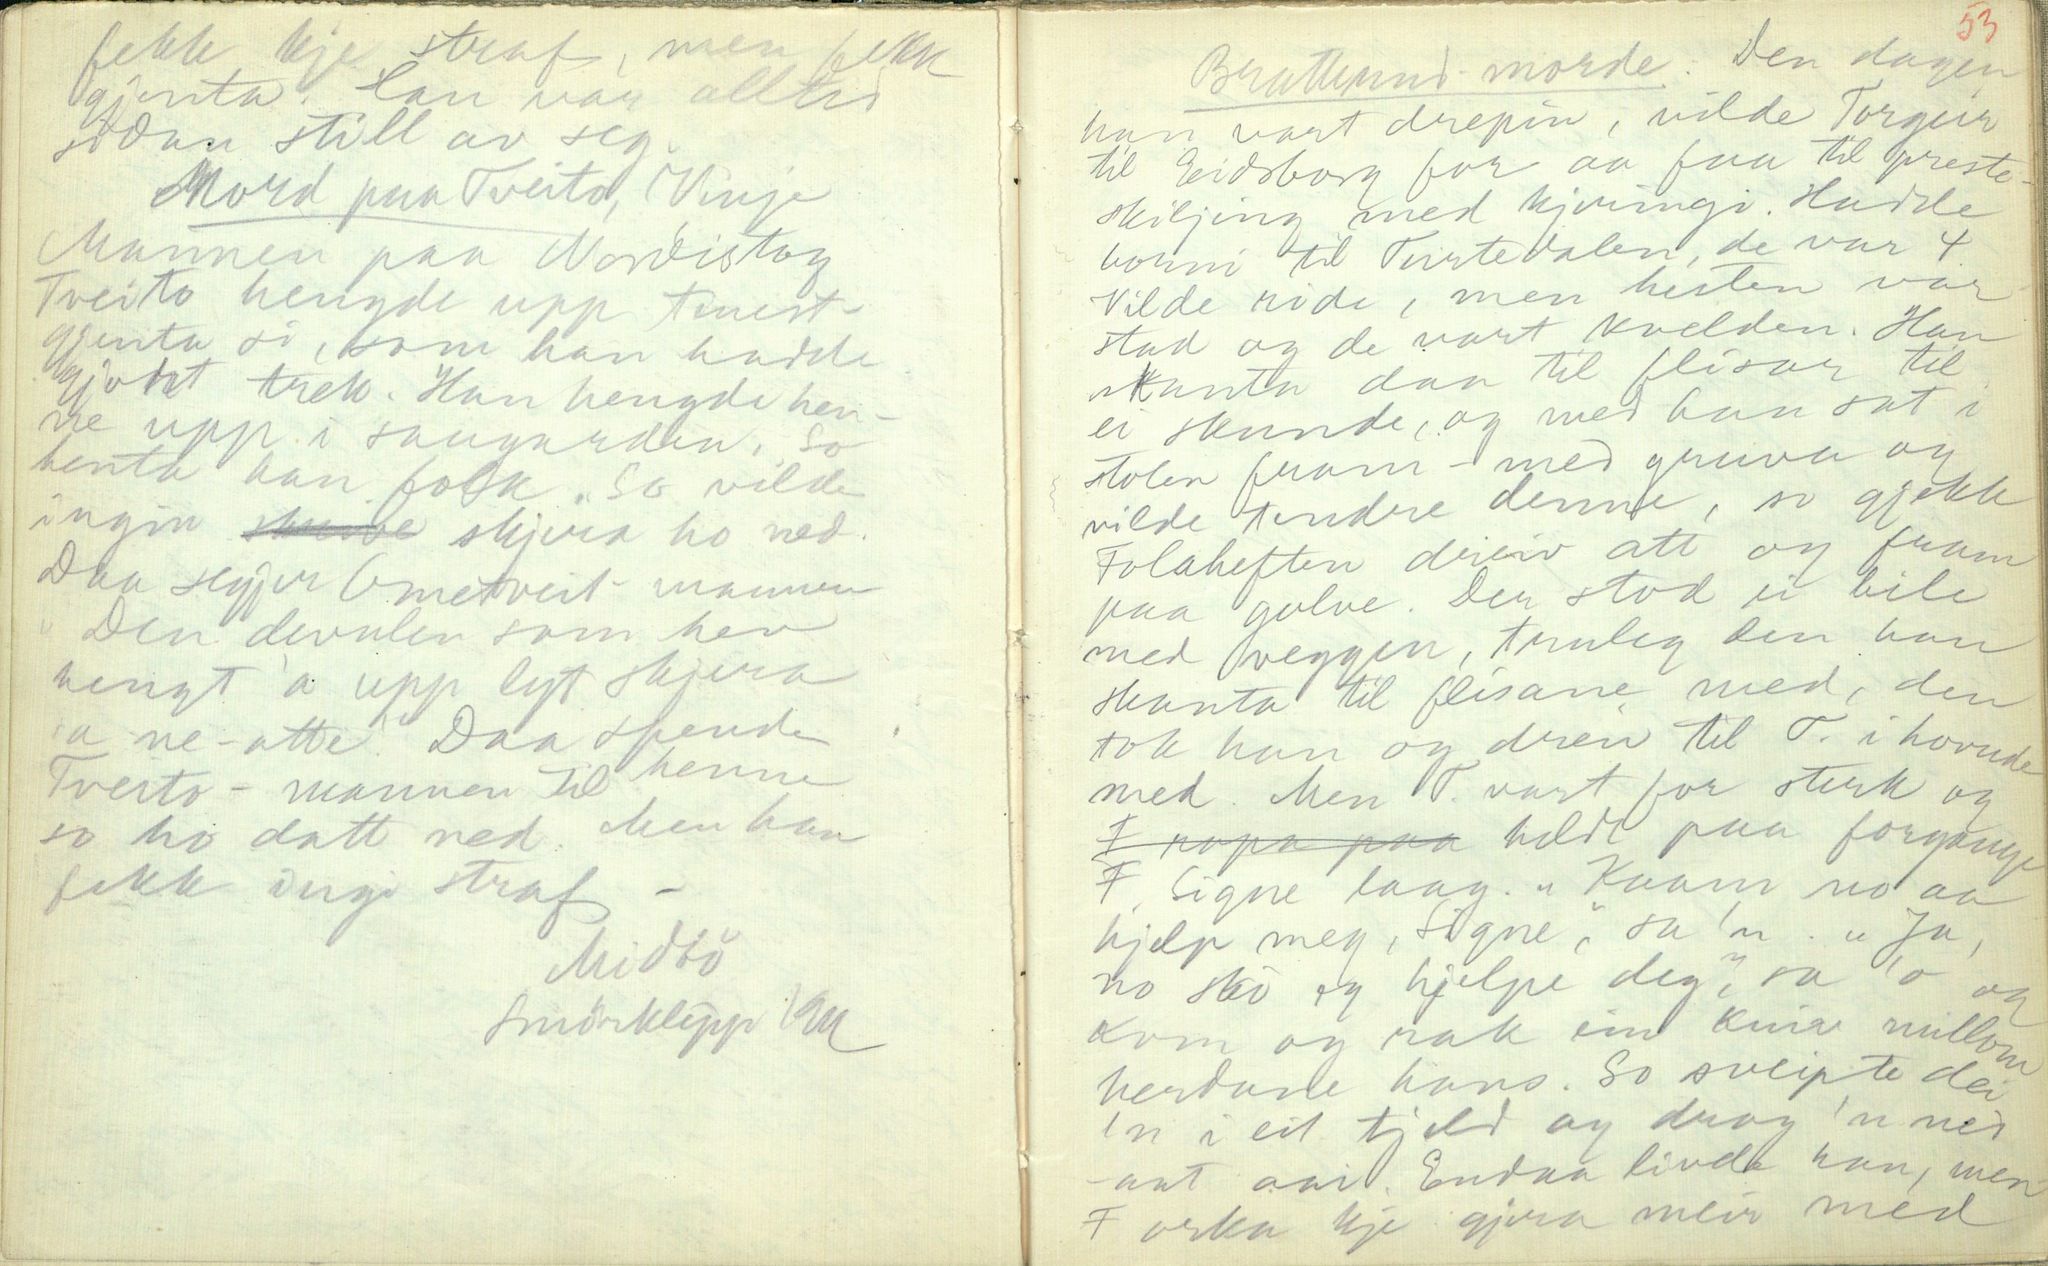 fekk kje straf, men fekk
gjenta. Han var alltid
sidan still av seg.
Mord paa Tveito, Vinje
Mannen paa Nordistog
Tveito hengde upp tenest-
gjenta si, som han hadde
gjort trek. Han hengde hen-
ne upp i saugarden. So
henta han folk. So vilde
ingin skjera ho ned.
Daa segjer Ometveit-mannen
"Den devulen som hev
hengt 'a upp lyt skjera
'a ne-atte." Daa spende
Tveito-mannen til henne
so ho datt ned. Men han
fekk ingi straf –
Midbö
Smörklepp 1911
53
Brattlund-morde. Den dagen
han vart drepin, vilde Torgeir
til Eidsborg for aa faa til preste-
skiljing med kjeringi. Hadde
borni til Turtedalen, de var 4.
Vilde ride, men hesten var
stad og de vart kvelden. Han
skanta daa til flisar til
ei skunde, og med han sat i
stolen fram-med gruva og
vilde tendre denne, so gjekk
Folaheften dreiv att og fram
paa golve. Der stod ei bile
med veggen, truleg den han
skanta til flisane med, den
tok han og dreiv til T. i hovude
med. Men T. vart for sterk og
F ropa paa heldt paa forgange
F. Signe laag. "Kaam no aa
hjelp meg, Signe", sa 'n. "Ja,
no skó eg hjelpe deg", sa 'o og
kom og rak ein kniv millom
herdane hans. So sveipte dei
'n i eit tjeld og drog 'n ned
-aat aai. Endaa livde han, men
F orka kje gjera meir med